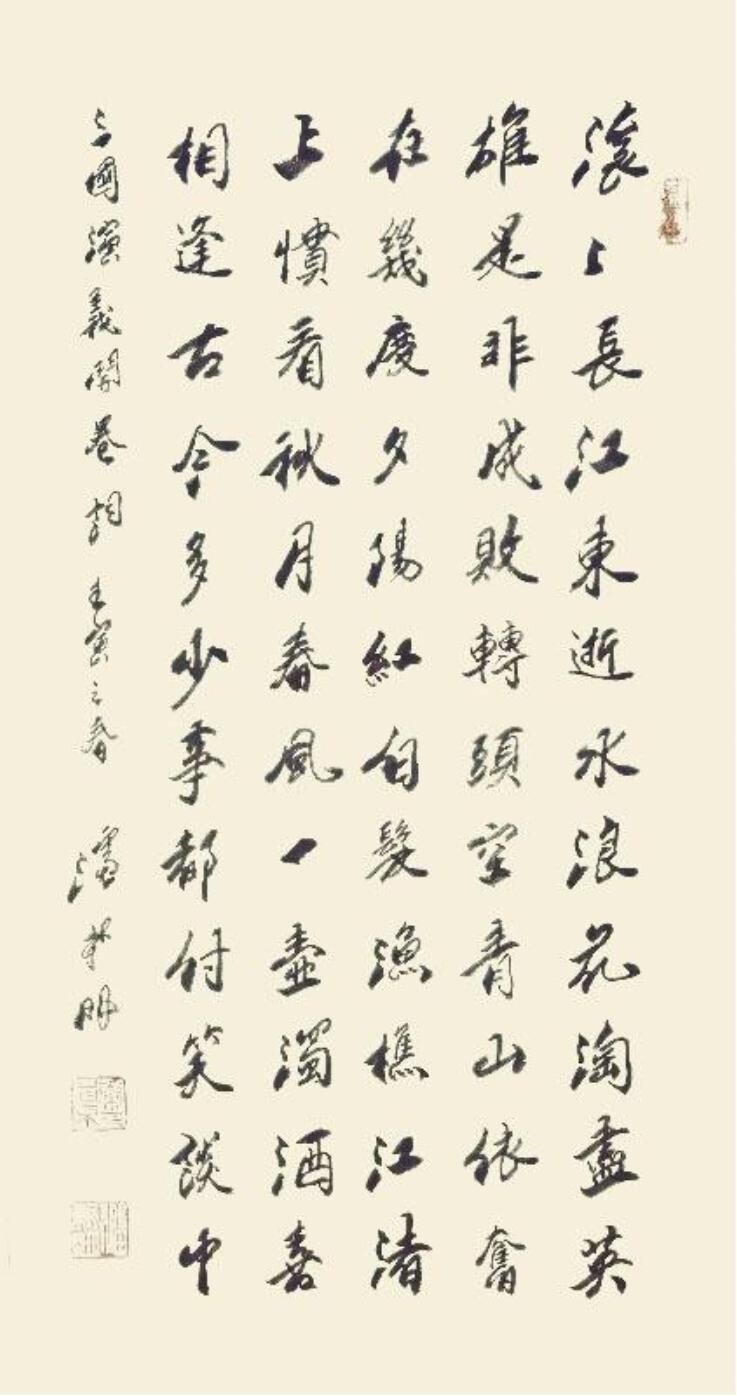 滾〻長江東逝水浪花淘盡英
雄是非成敗轉頭空青山依奮
在幾度夕陽紅白髮漁樵江渚
上慣看秋月春風一壺濁酒喜
相逢古今多少事都付笑談中
三國演義開卷詞 壬寅之春 潘 明